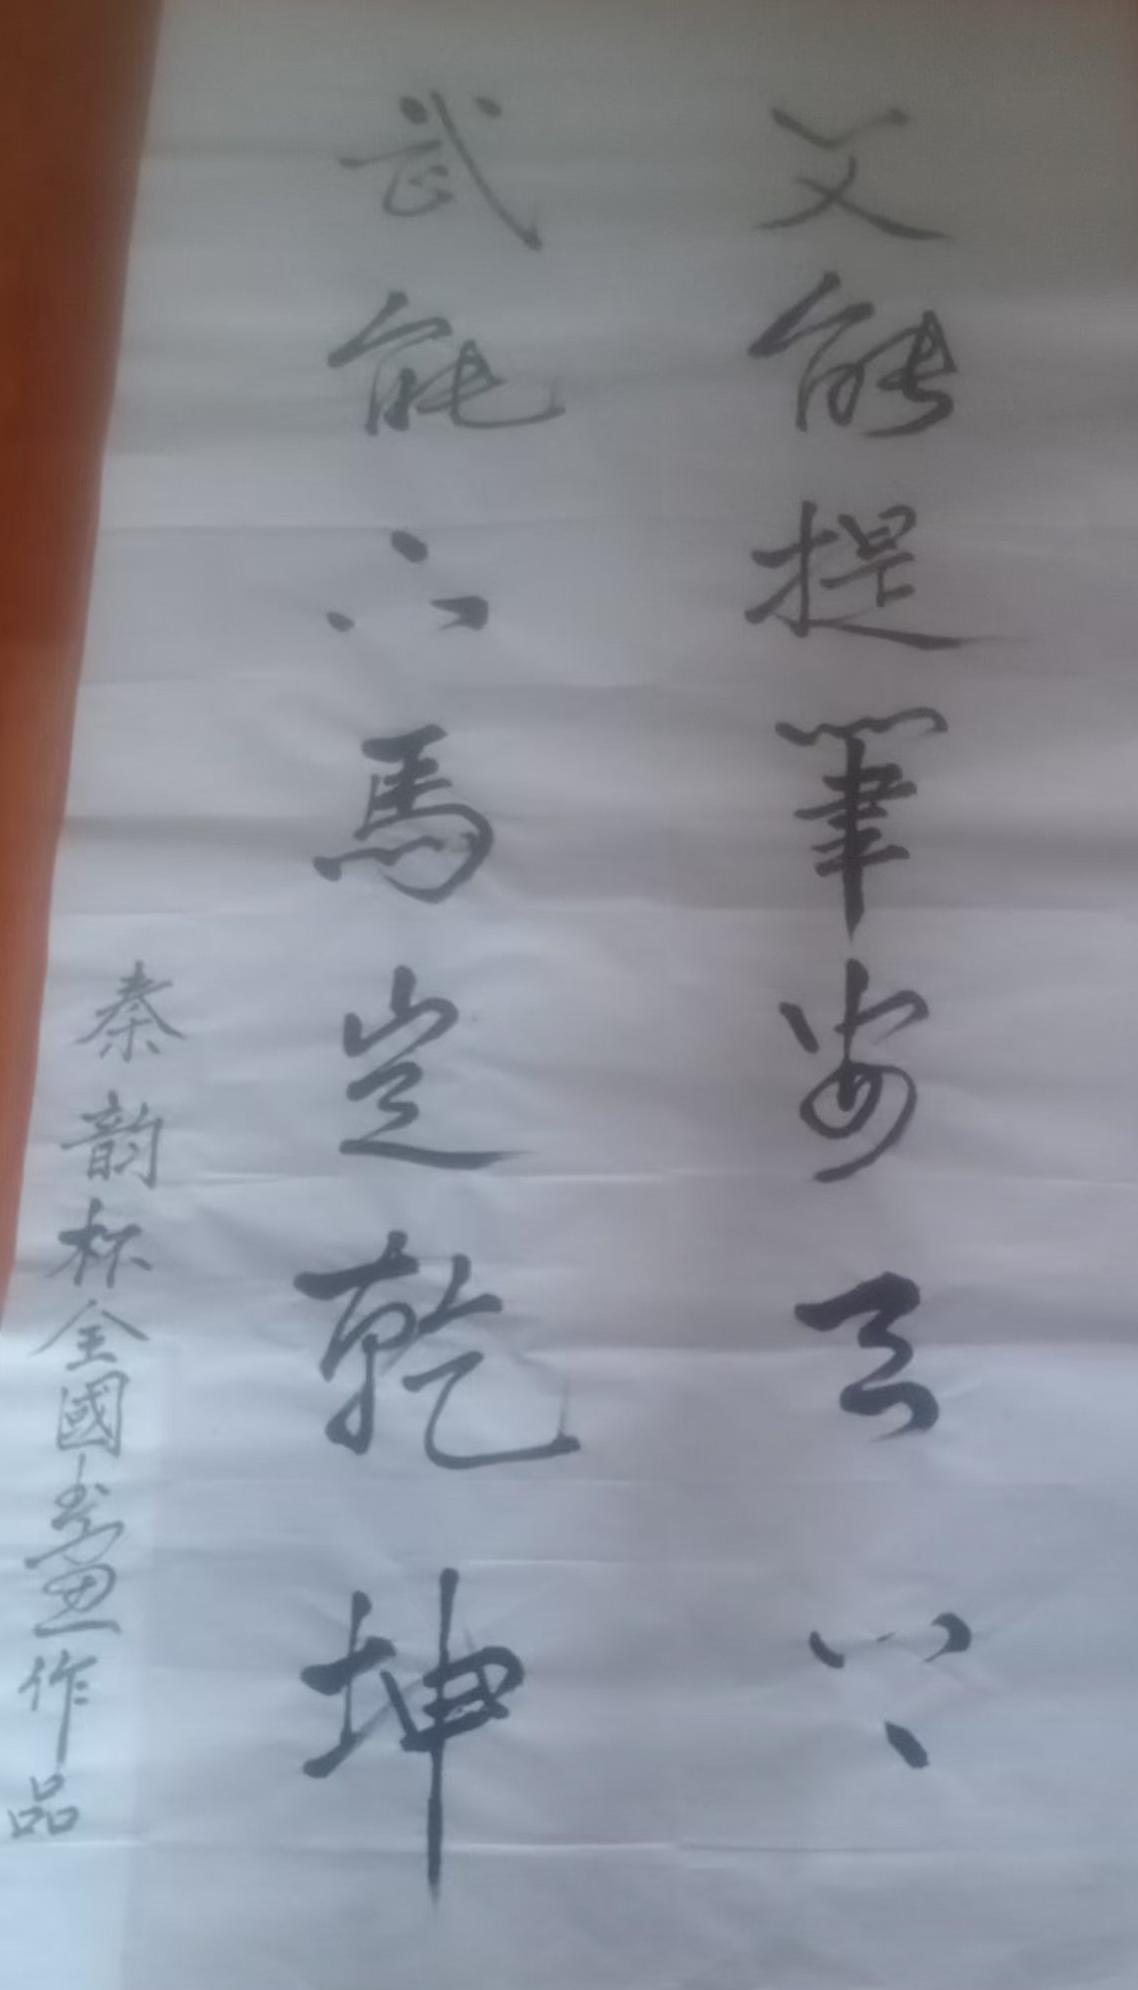 文能提筆安天下
武能下馬定乾坤
秦韵杯全國書畫作品